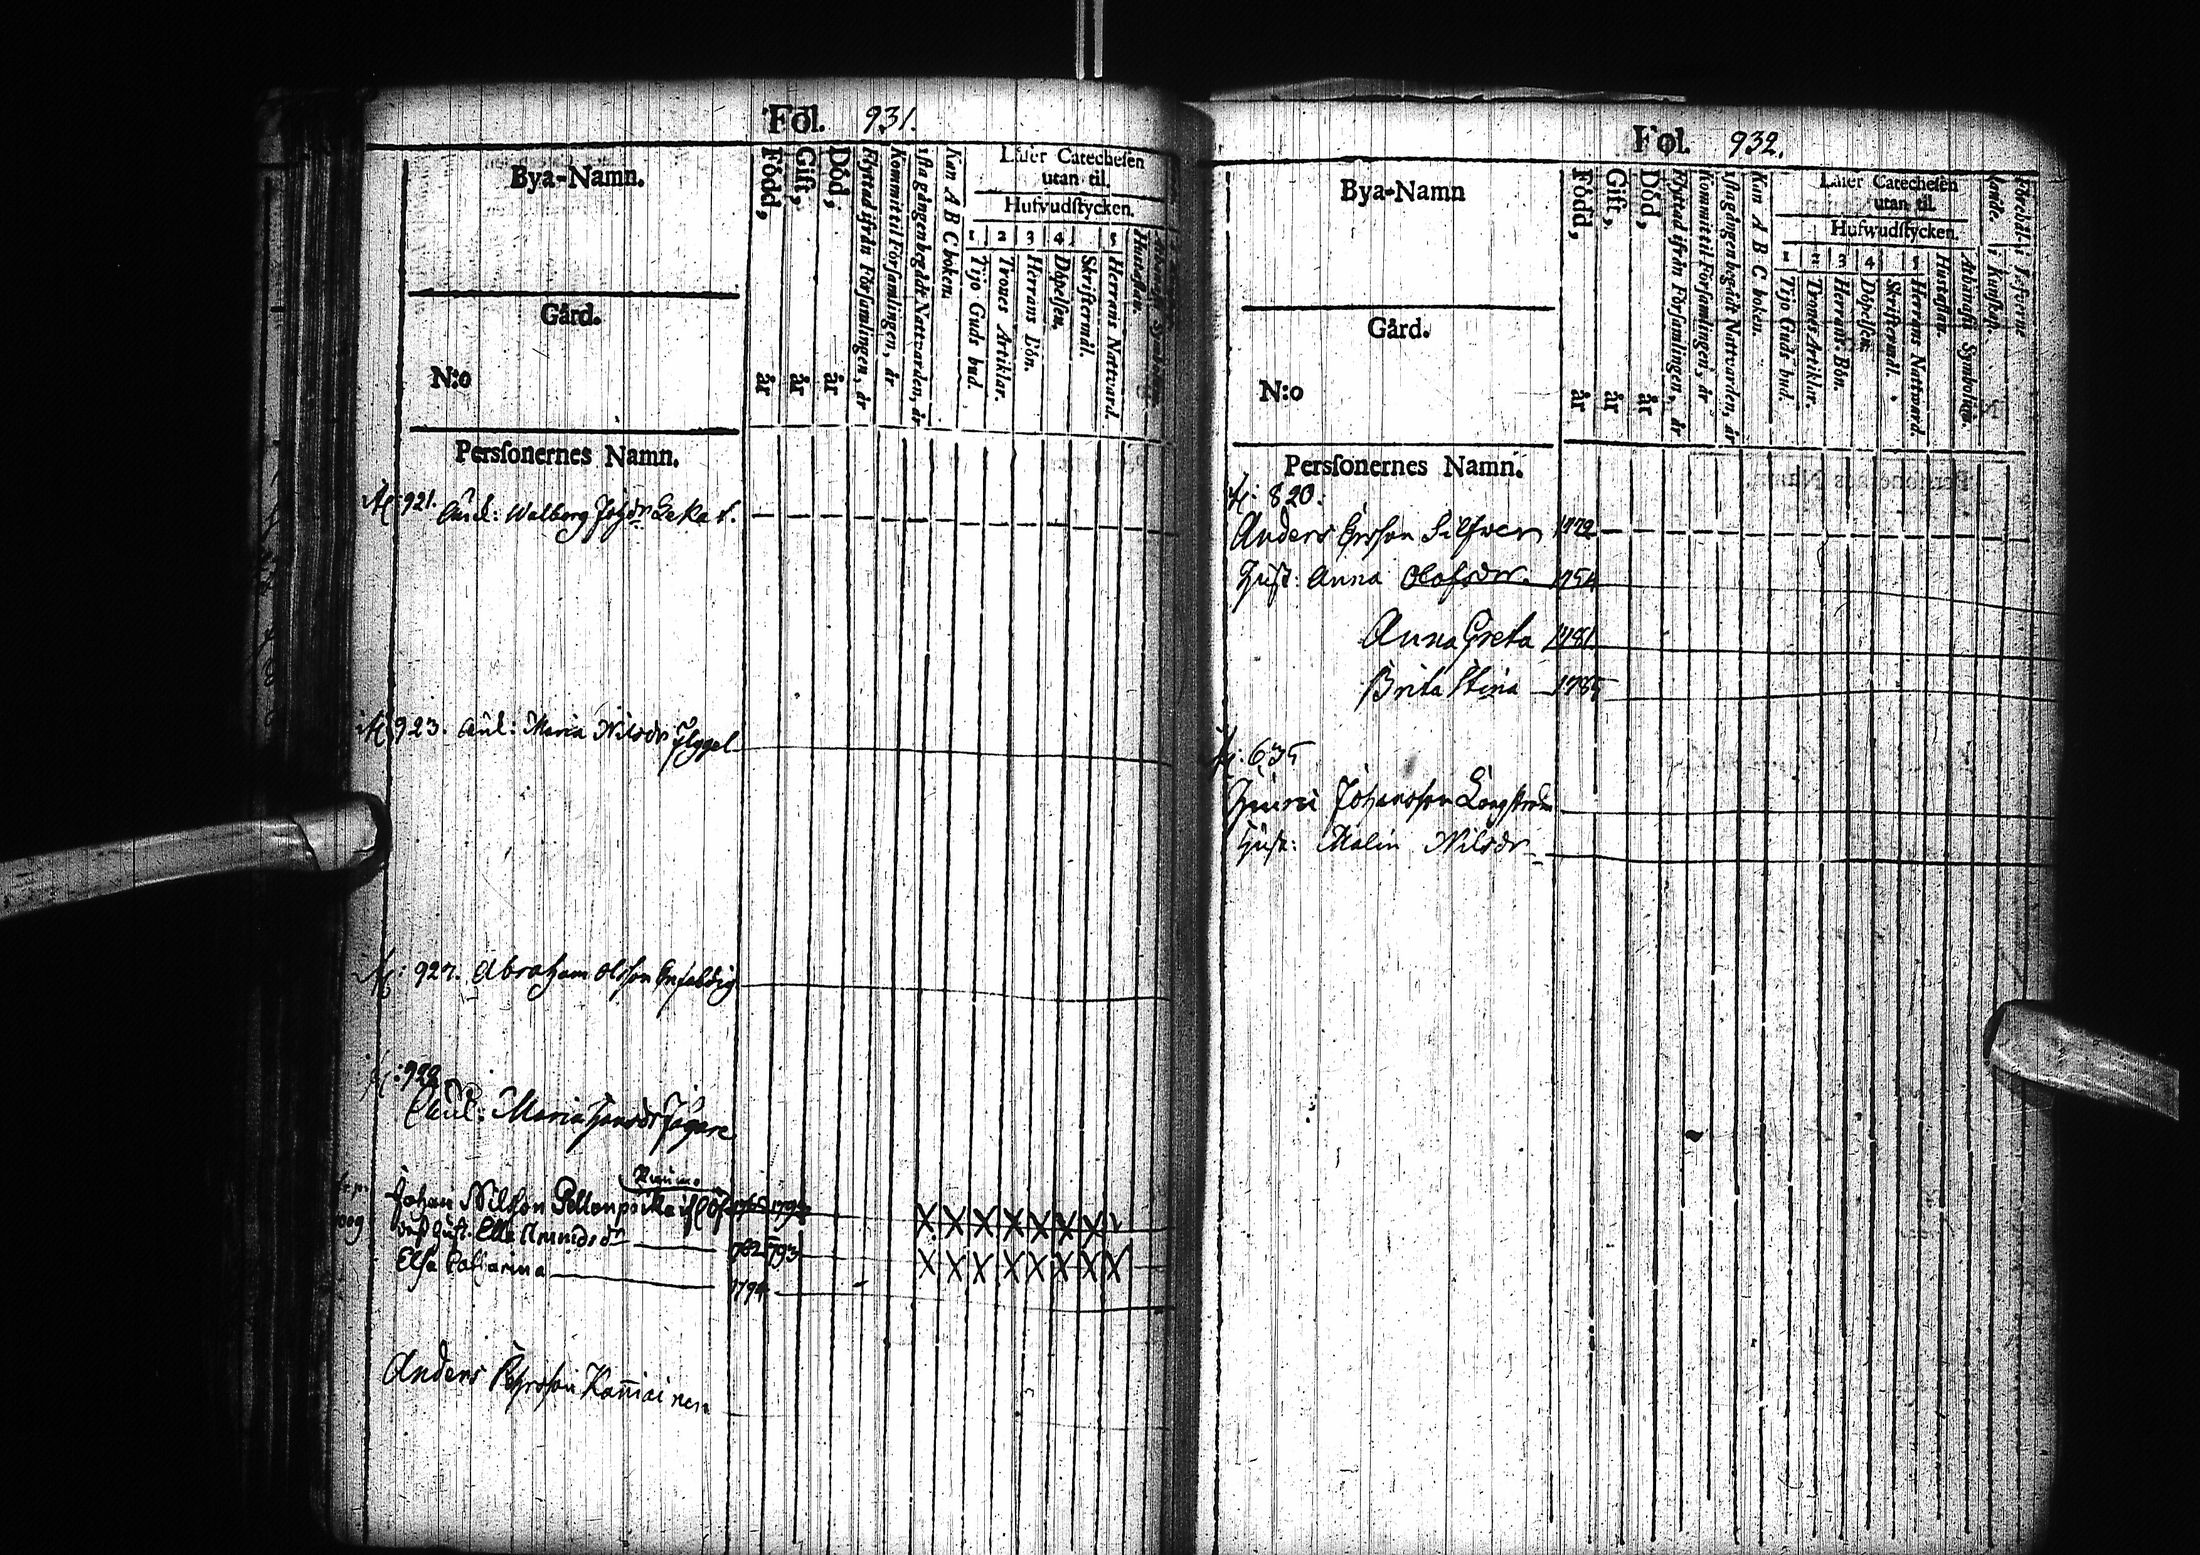 Fol. 931.
Bya-Namn.
Gård.
N:o
Personernes Namn.
Född, år
Gift, år
Död, år
Flyttad ifrån Församlingen, år
Kommit til Församlingen, år
1sta gången begådt Nattvarden, år
Kan A B C boken.
Läser Catechesen
utan til.
Hufvudstycken.
1 2 3 4 5
Tijo Guds bud.
Trones Artiklar.
Herrans Bön.
Döpelsen.
Skriftermål.
Herrens Nattvard.
Hustaflan.
N: 921. Enk: Walborg Johsdr Lekat.
N: 923. Enk: Maria Nilsdr Flygel
N: 927. Abraham Olsson Enfaldig
N: 929
Enk: Maria Hansdr Jägare
Johan Nilsson
1794
Anders Kaniainen
Fol. 932.
Bya-Namn
Gård.
N:o
Personernes Namn.
Född, år
Gift, år
Död, år
Flyttad ifrån Församlingen, år
Kommit til Församlingen, år
1sta gången begådt Nattvarden, år
Kan A B C boken.
Läser Catechesen
utan til.
Hufwudstycken.
1 2 3 4 5
Tijo Guds bud.
Trones Artiklar.
Herrans Bön.
Döpelsen.
Skriftermål.
Herrans Nattward.
Hustaflan.
Athanasii Symbolum.
N: 820.
Anders Ersson Silfwer 1772
Hust: Anna Olofsdr. 1754
Anna Greta 1781
Brita Stina 1785
N: 635
Johansson Långström
Hust: Malin Nilsdr